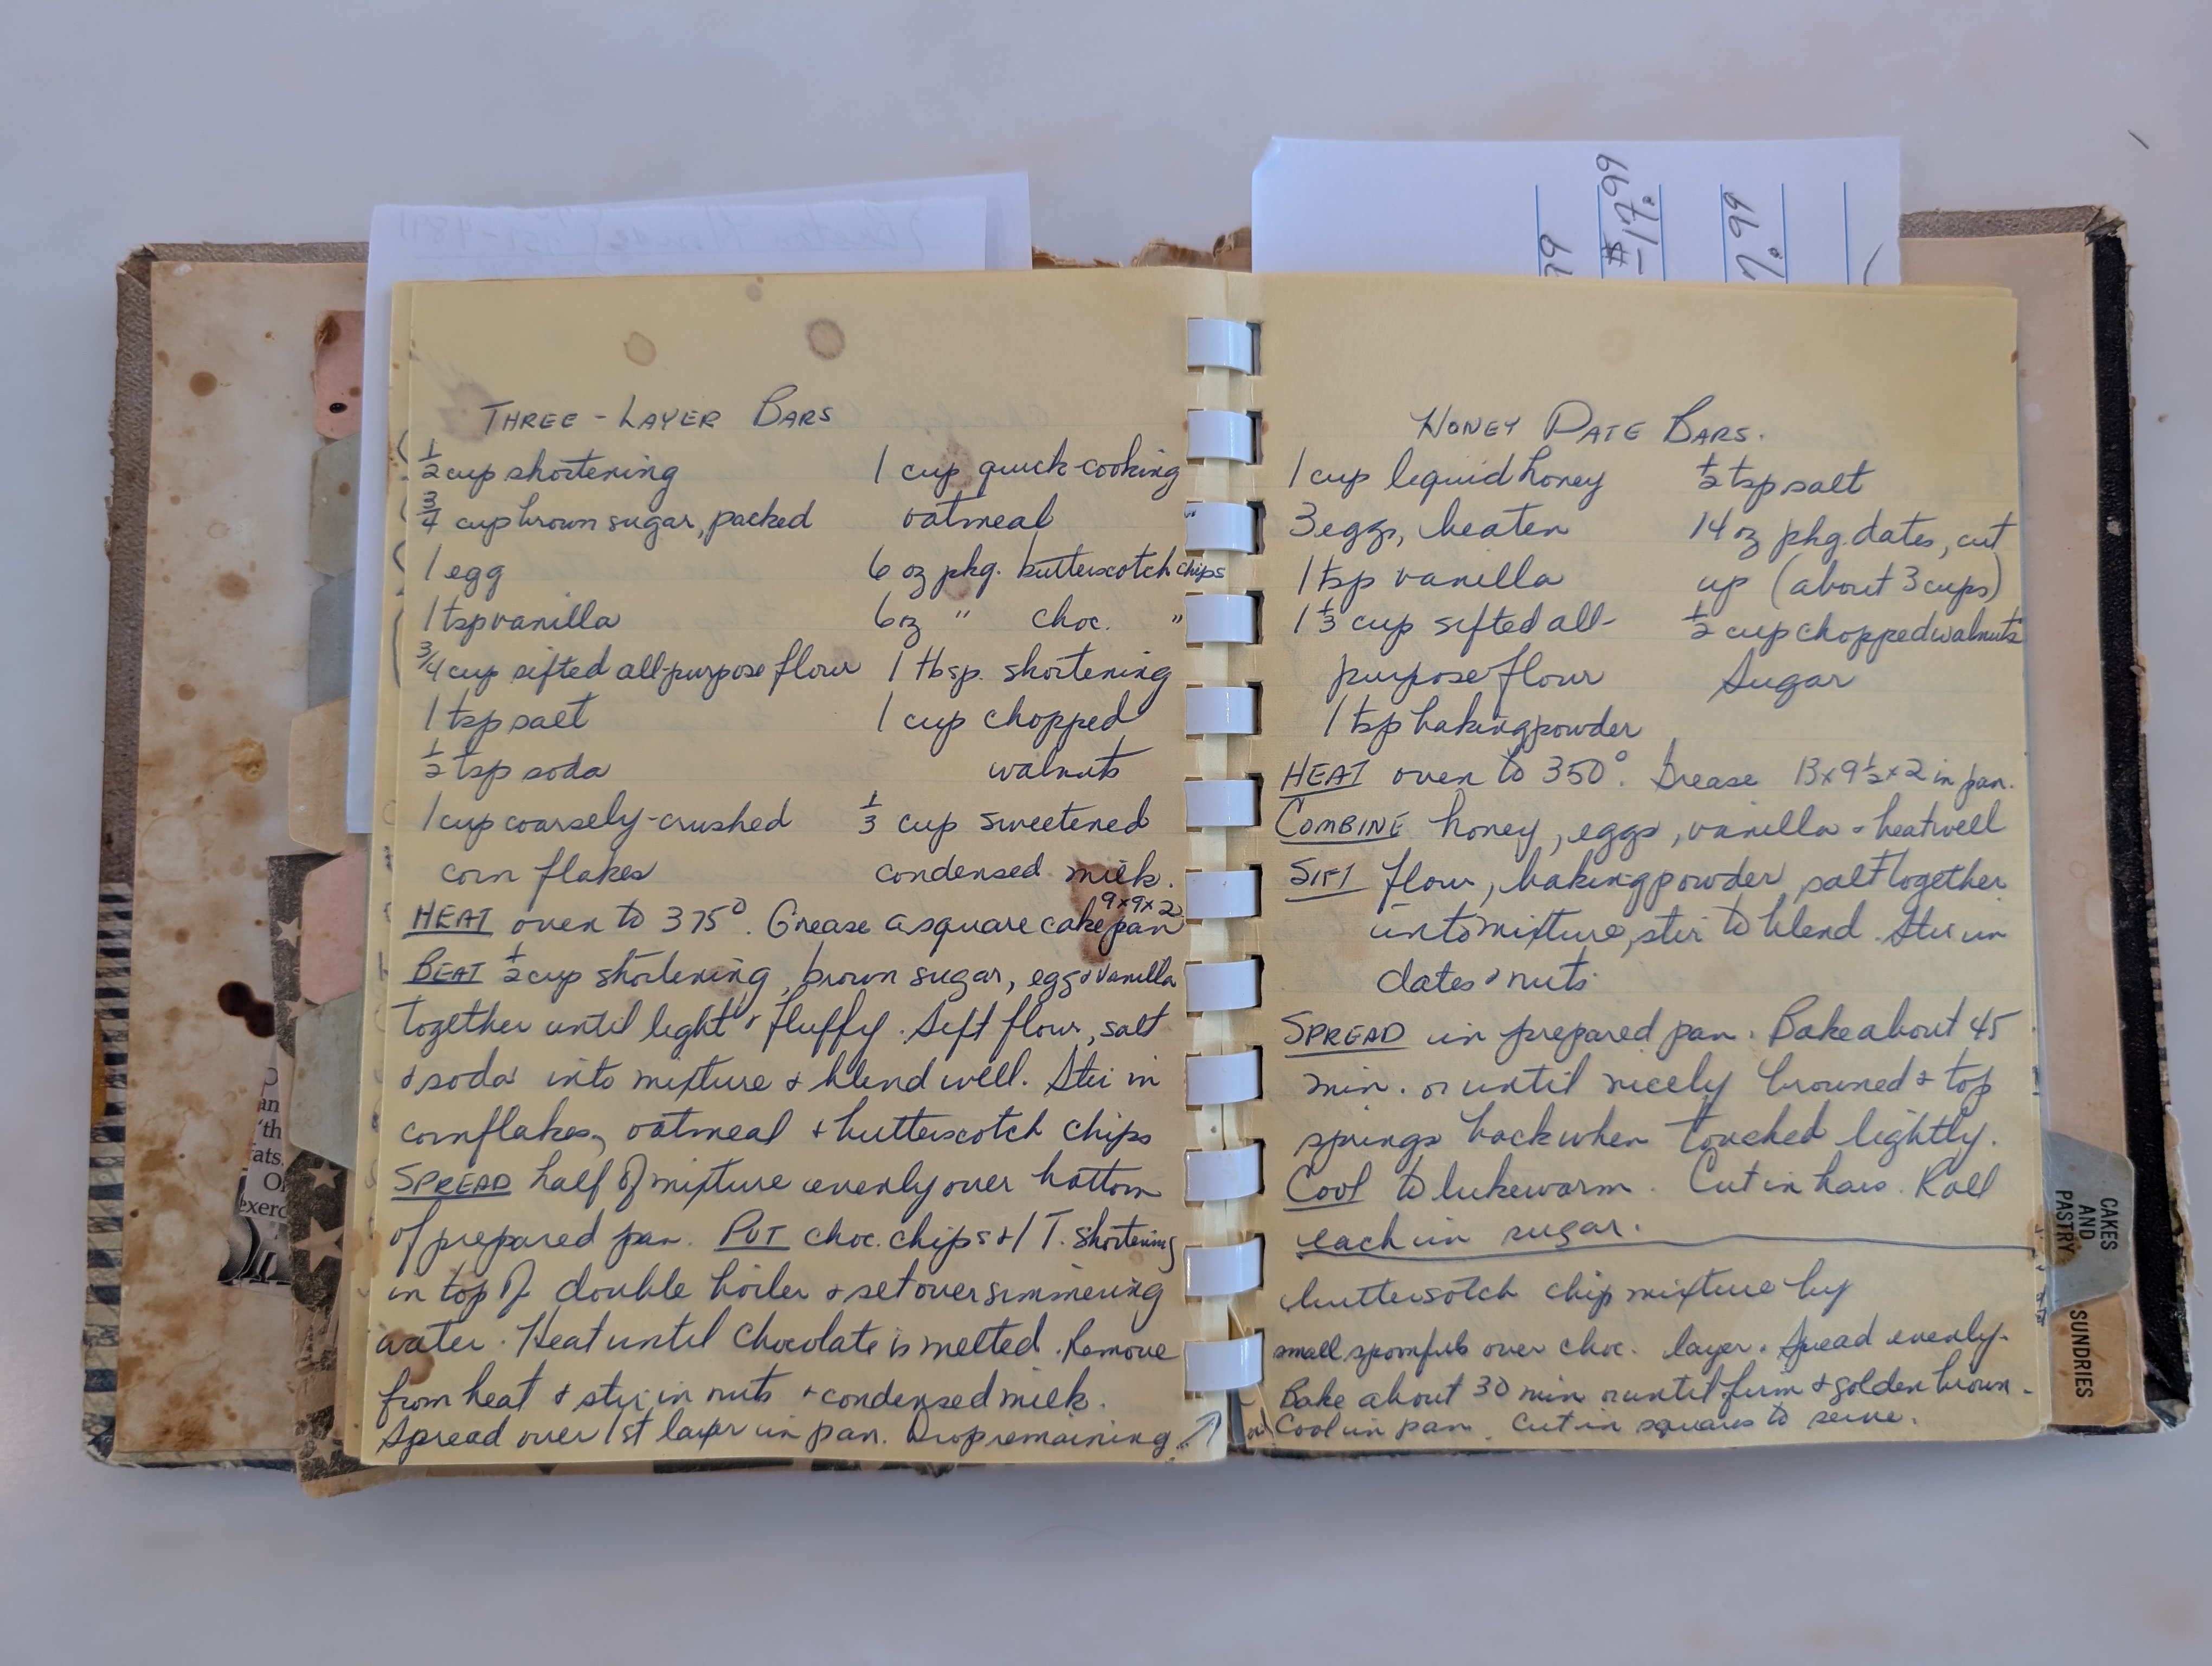 THREE-LAYER BARS
1/2 cup shortening
3/4 cup brown sugar, packed
1 egg
1 tsp vanilla
3/4 cup sifted all-purpose flour
1 tsp salt
1/2 tsp soda
1 cup coarsely-crushed
corn flakes
1 cup quick-cooking
oatmeal
6 oz pkg. butterscotch chips
6 oz " choc. "
1 tbsp. shortening
1 cup chopped
walnuts
1/3 cup sweetened
condensed milk.
HEAT oven to 375°. Grease a square cake pan 9x9x2
BEAT 1/2 cup shortening, brown sugar, egg & vanilla
together until light & fluffy. Sift flour, salt
& soda into mixture & blend well. Stir in
cornflakes, oatmeal & butterscotch chips
SPREAD half of mixture evenly over bottom
of prepared pan. PUT choc. chips & 1 T. shortening
in top of double boiler & set over simmering
water. Heat until chocolate is melted. Remove
from heat & stir in nuts & condensed milk.
Spread over 1st layer in pan. Drop remaining
HONEY DATE BARS.
1 cup liquid honey
3 eggs, beaten
1 tsp vanilla
1 1/3 cup sifted all-
purpose flour
1 tsp baking powder
1/2 tsp salt
14 oz pkg. dates, cut
up (about 3 cups)
1/2 cup chopped walnuts
Sugar
HEAT oven to 350°. Grease 13x9 1/2x2 in pan.
COMBINE honey, eggs, vanilla & beat well
SIFT flour, baking powder, salt together
into mixture, stir to blend. Stir in
dates & nuts
SPREAD in prepared pan. Bake about 45
min. or until nicely browned & top
springs back when touched lightly.
COOL to lukewarm. Cut in bars. Roll
each in sugar.
buttersotch chip mixture by
small spoonfuls over choc. layer. Spread evenly.
Bake about 30 min or until firm & golden brown.
Cool in pan. Cut in squares to serve.
CAKES
AND
PASTRY
SUNDRIES
an
'th
ats.
exerc